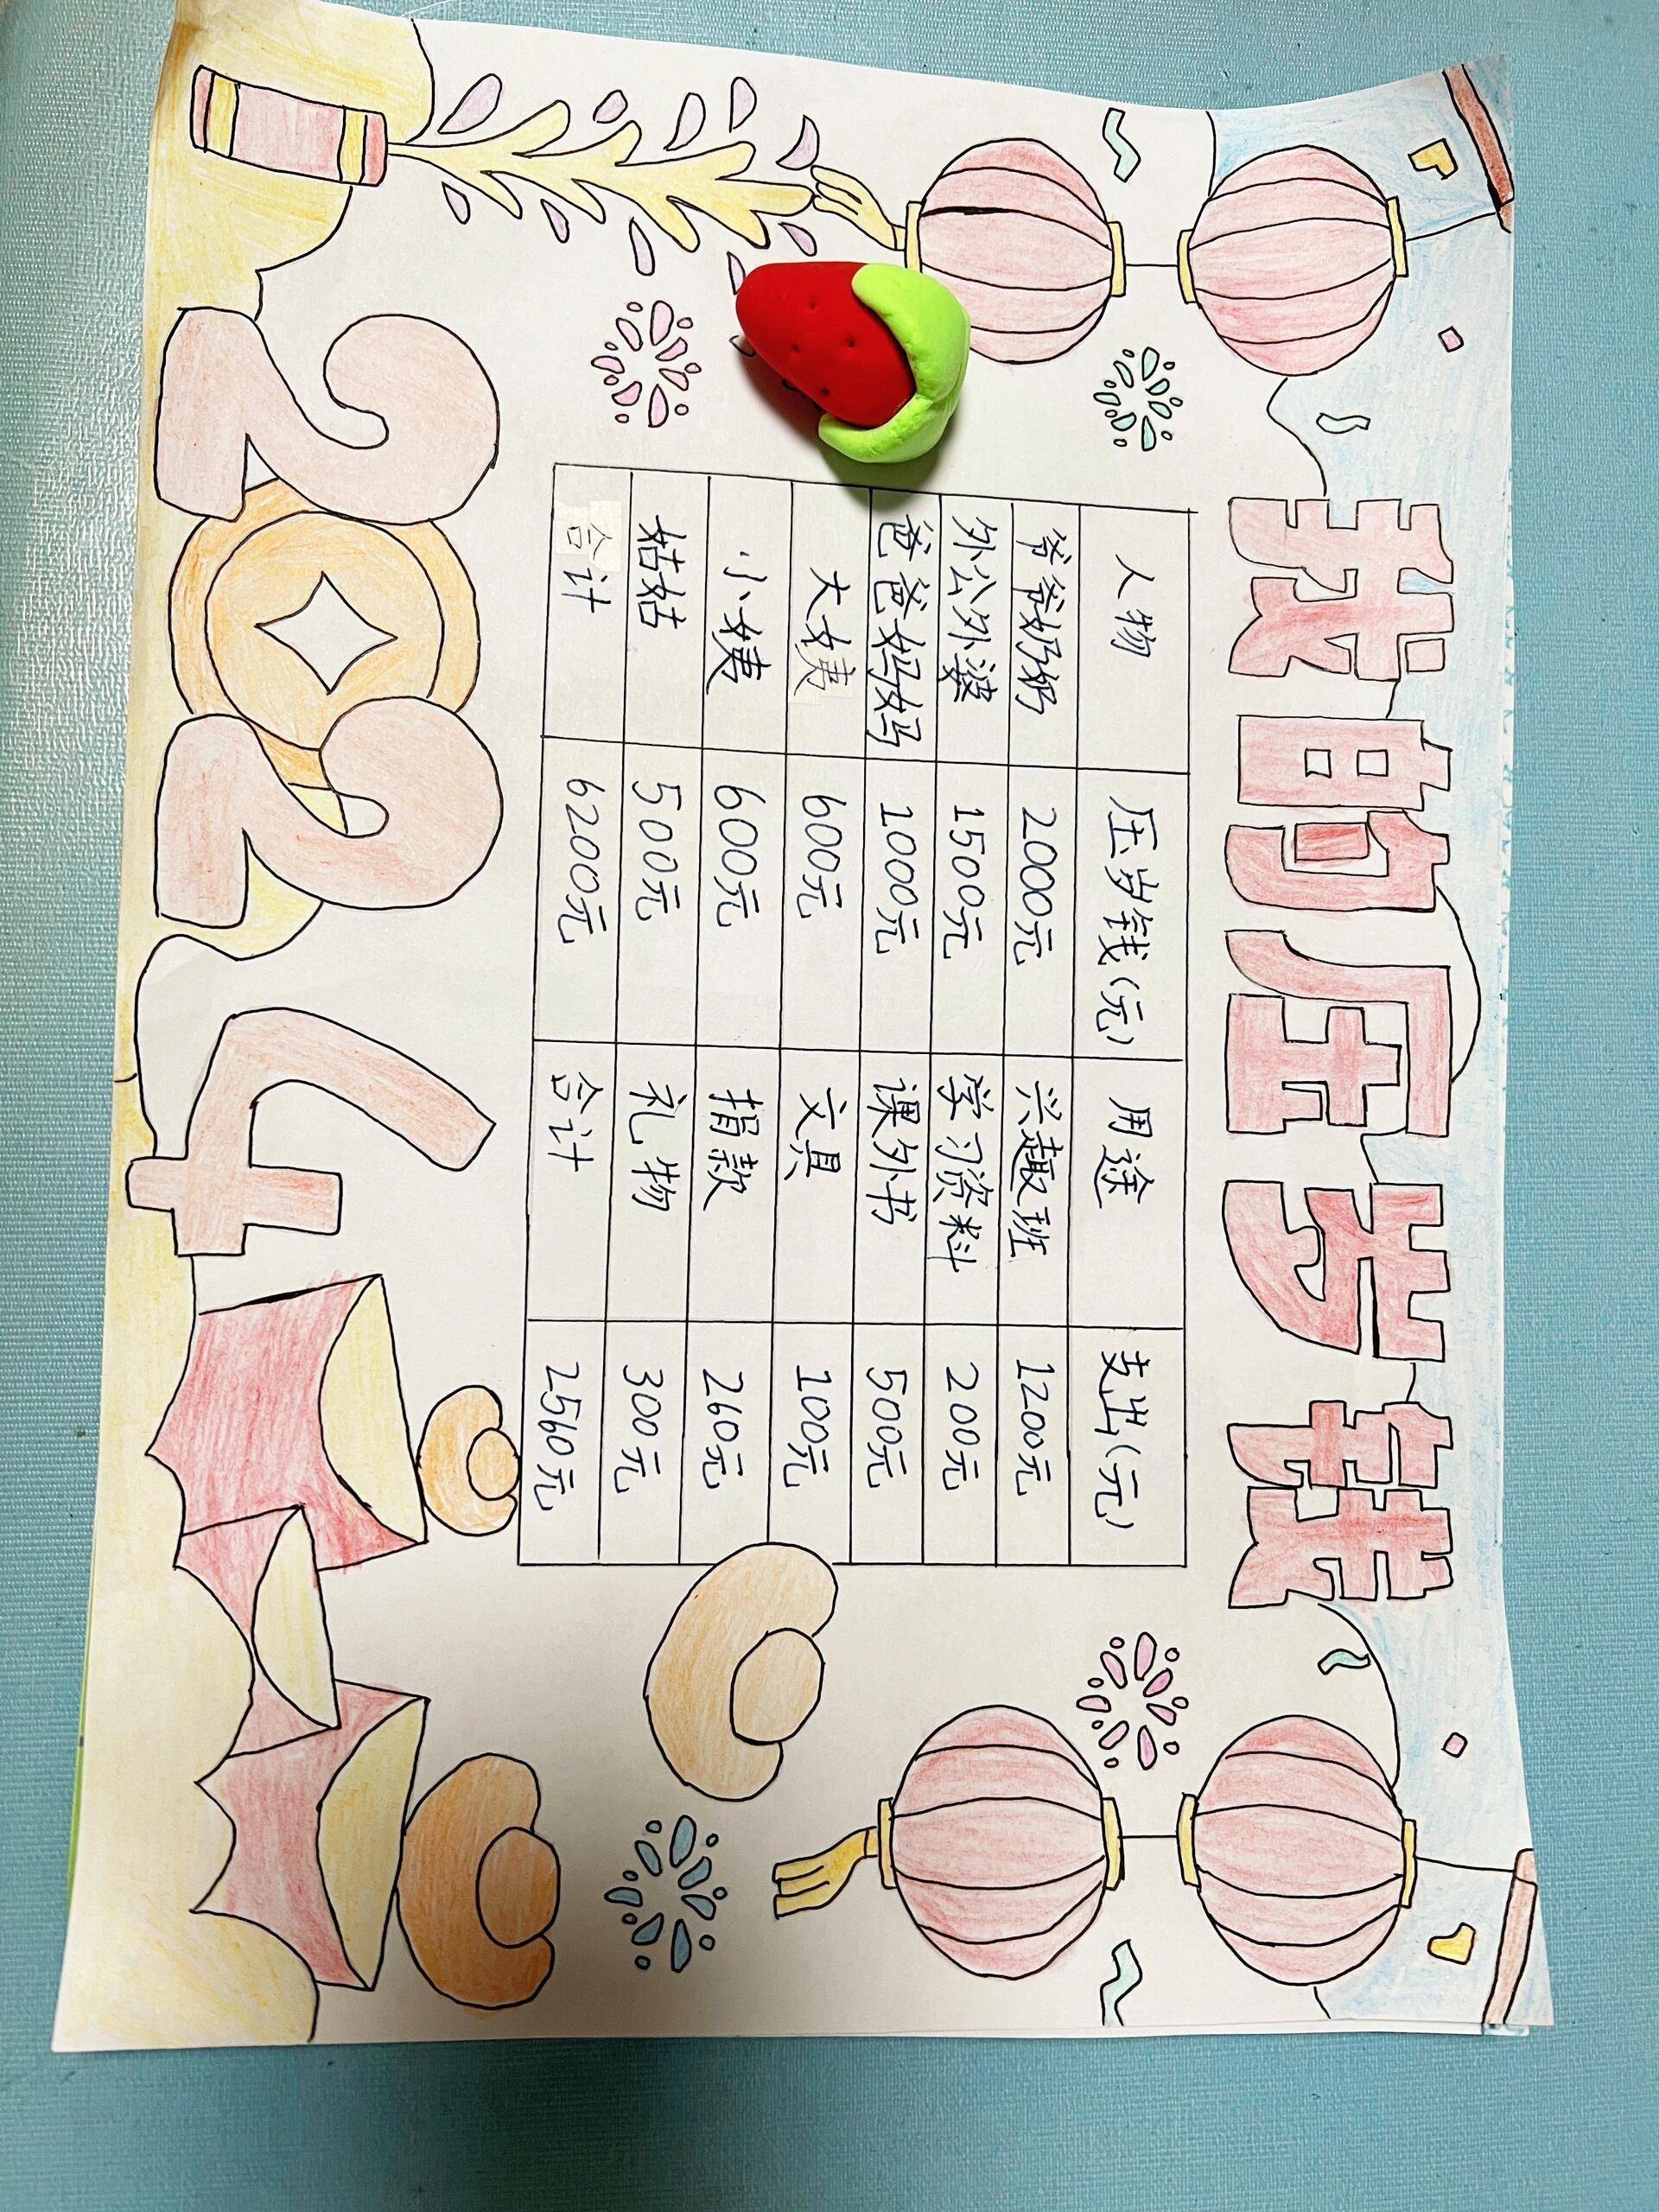 我的压岁钱
人物 压岁钱(元) 用途 支出(元)
爷爷奶奶 2000元 兴趣班 1200元
外公外婆 1500元 学习资料 200元
爸爸妈妈 1000元 课外书 500元
大姨 600元 文具 100元
小姨 600元 捐款 260元
姑姑 500元 礼物 300元
合计 6200元 合计 2560元
2024